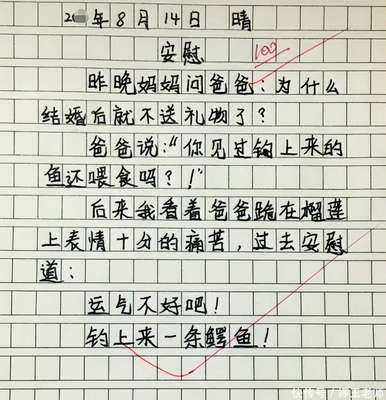 8月14日 晴
安慰
100
昨晚妈妈问爸爸：为什么
结婚后就不送礼物了？
爸爸说：“你见过钩上来的
鱼还喂食吗？！”
后来我看着爸爸跪在榴莲
上表情十分的痛苦，过去安慰
道：
运气不好吧！
钓上来一条鳄鱼！